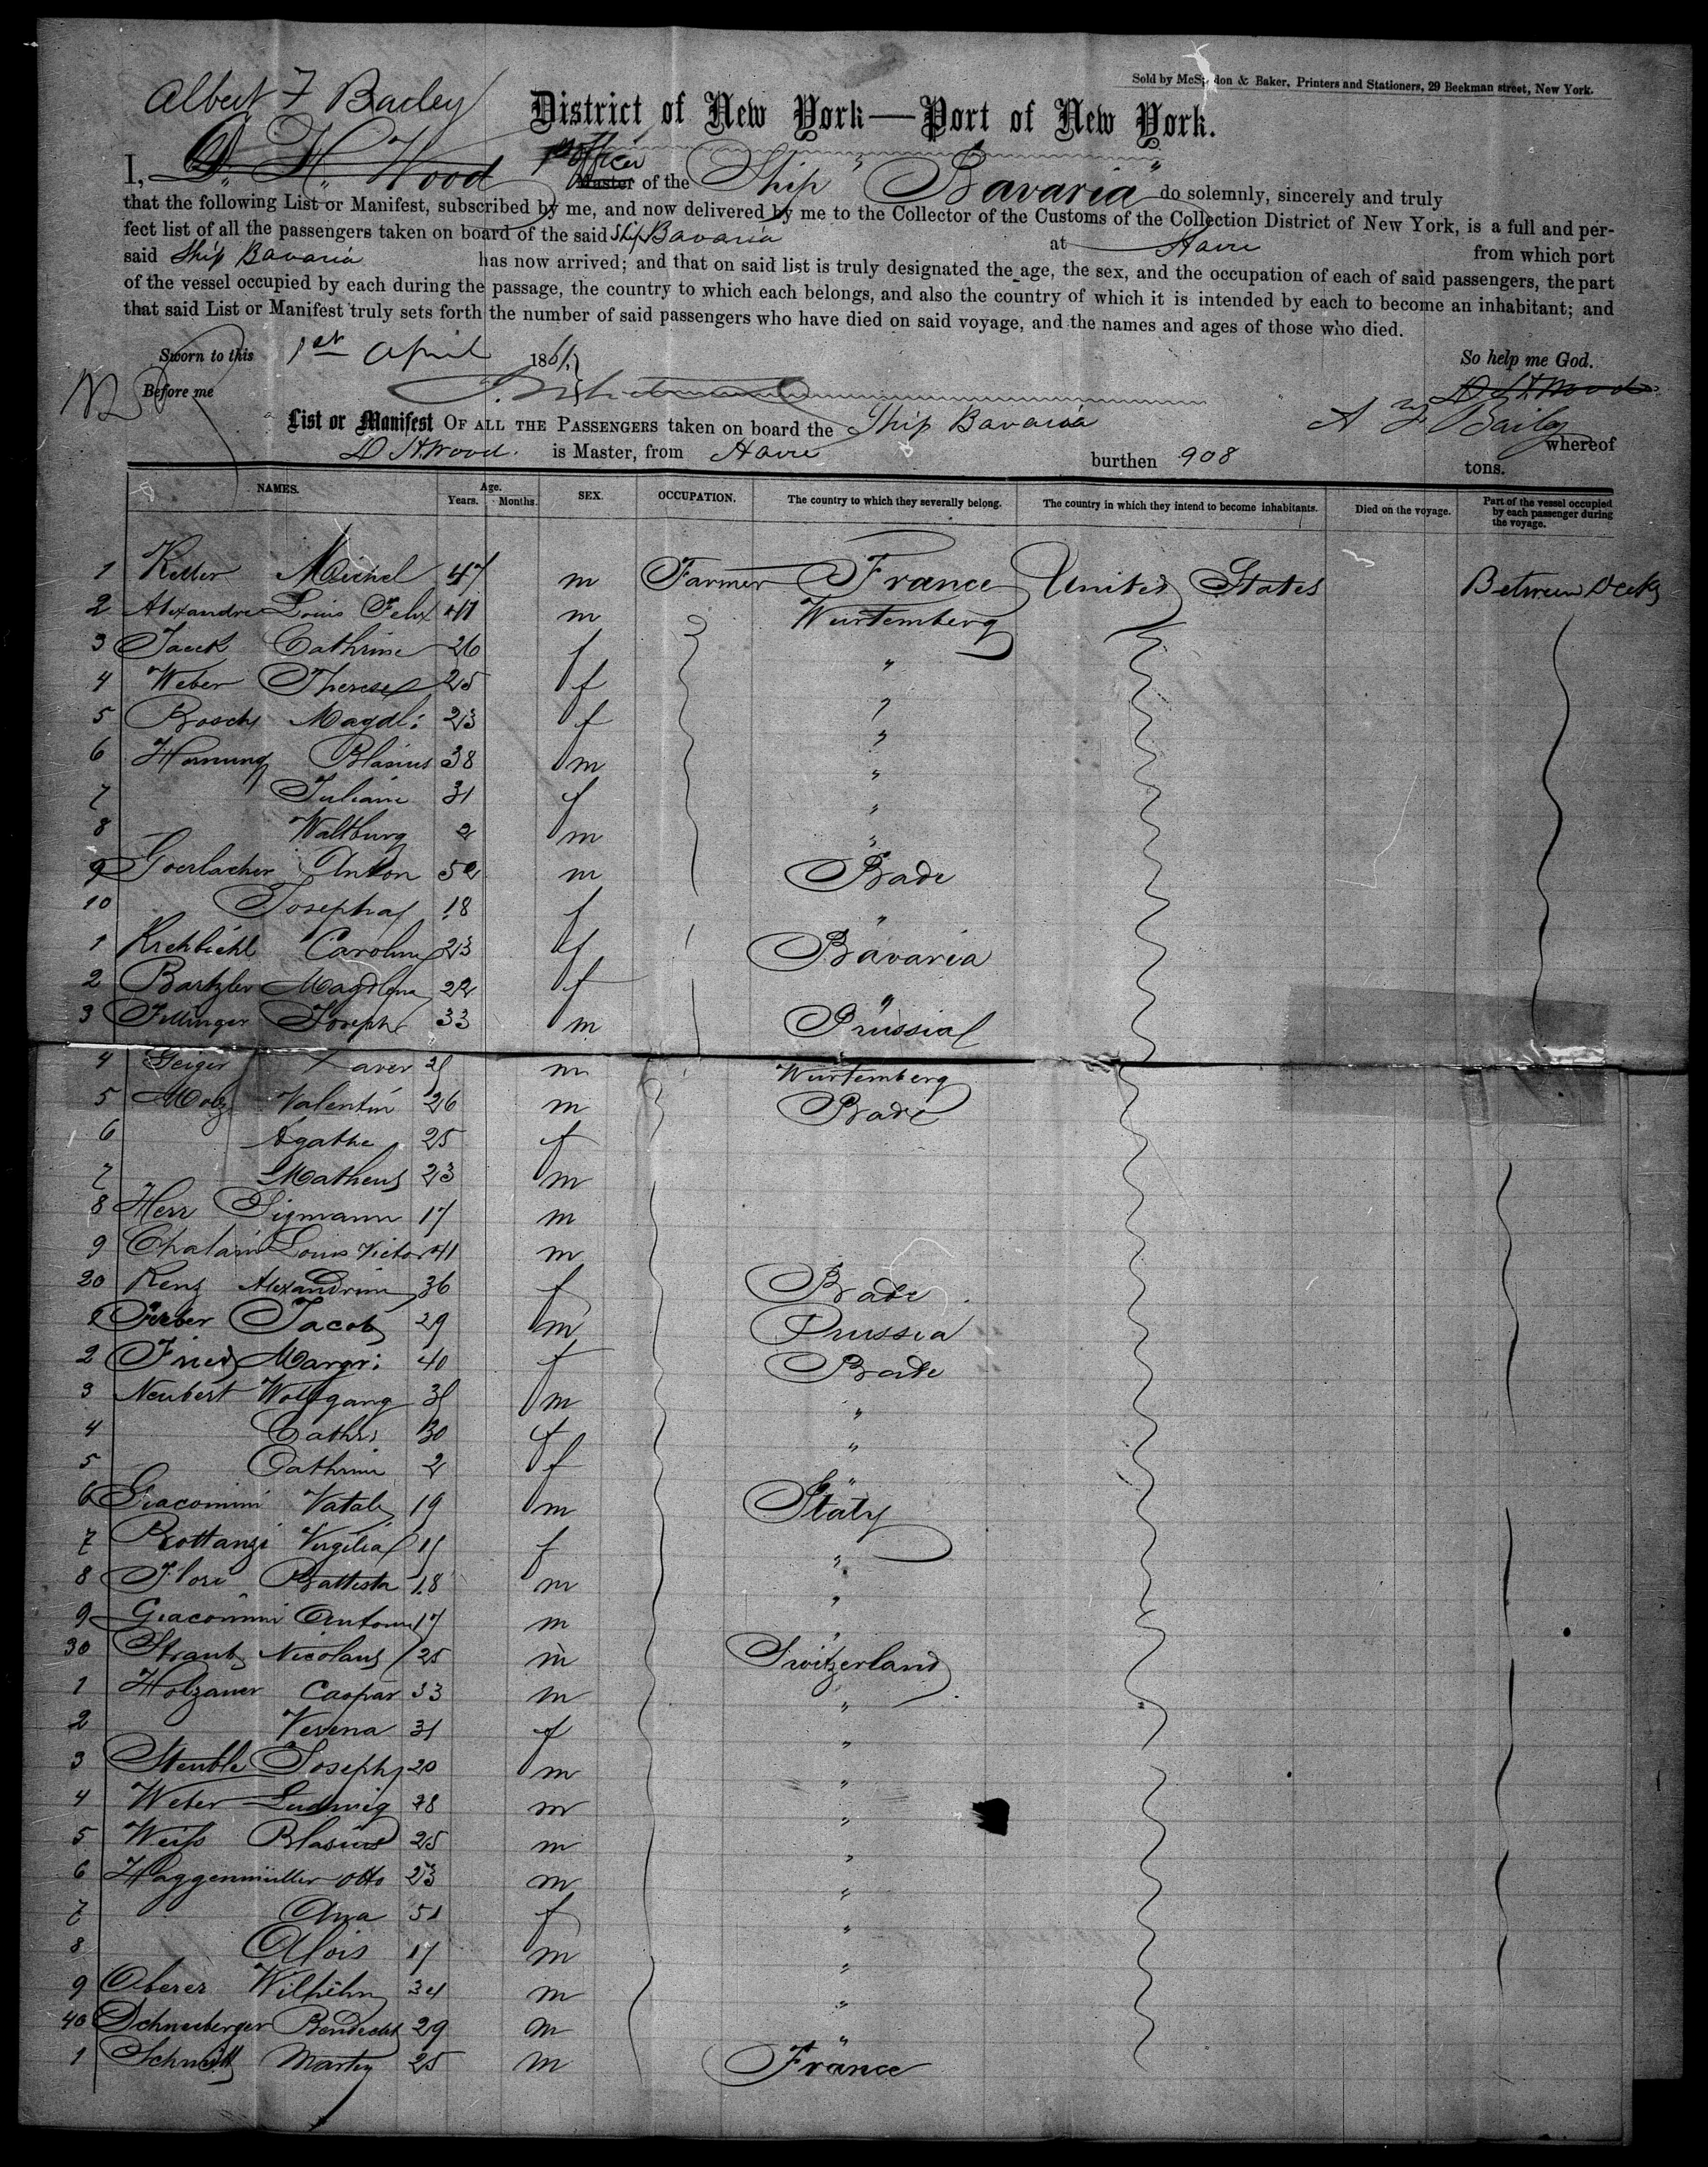 Sold by McSpedon & Baker, Printers and Stationers, 29 Beekman street, New York.
Albert F Bailey
District of New York—Port of New York.
I, D. H. Wood officer Master of the Ship "Bavaria" do solemnly, sincerely and truly
that the following List or Manifest, subscribed by me, and now delivered by me to the Collector of the Customs of the Collection District of New York, is a full and per-
fect list of all the passengers taken on board of the said Ship Bavaria at Havre from which port
said Ship Bavaria has now arrived; and that on said list is truly designated the age, the sex, and the occupation of each of said passengers, the part
of the vessel occupied by each during the passage, the country to which each belongs, and also the country of which it is intended by each to become an inhabitant; and
that said List or Manifest truly sets forth the number of said passengers who have died on said voyage, and the names and ages of those who died.
Sworn to this 1st April 1861 So help me God.
Before me D H Wood
A F Bailey
List or Manifest OF ALL THE PASSENGERS taken on board the Ship Bavaria whereof
D H Wood. is Master, from Havre burthen 908 tons.
NAMES. Age. Years. Months. SEX. OCCUPATION. The country to which they severally belong. The country in which they intend to become inhabitants. Died on the voyage. Part of the vessel occupied by each passenger during the voyage.
1 Keller Michel 47 m Farmer France United States Between Decks
2 Alexandre Louis Felix 41 m Wurtemberg
3 Jauck Cathrine 26 f "
4 Weber Therese 25 f "
5 Bosch Magdl: 23 f "
6 Hornung Blasius 38 m "
7 Juliane 31 f "
8 Waltburg 2 m "
9 Goerlacher Anton 52 m Bade
10 Josepha 18 f "
1 Krehbiehl Caroline 23 f Bavaria
2 Bartzler Magdlena 22 f "
3 Fellinger Joseph 33 m Prussia
4 Geiger Xaver m Wurtemberg
5 Molz Valentin 26 m Bade
6 Agathe 25 f
7 Matheus 23 m
8 Herr Sigmann 17 m
9 Chalain Louis Victor 41 m
20 Renz Alexandrine 36 f Bade
1 Ferber Jacob 29 m Prussia
2 Fried Margr: 40 f Bade
3 Neubert Wolfgang m "
4 Cathr: 30 f "
5 Cathrine 2 f "
6 Giacomini Natale 19 m Italy
7 Bottanzi Virgilia f "
8 Flori Battista 18 m "
9 Giacomini Antoine 17 m "
30 Straub Nicolaus 25 m Switzerland
1 Holzauer Caspar 33 m "
2 Verena 31 f "
3 Steuble Joseph 20 m "
4 Weber Ludwig 28 m "
5 Weiss Blasius 25 m "
6 Haggenmüller Otto 23 m "
7 Ana 51 f "
8 Alois 17 m "
9 Oberer Wilhelm 34 m "
40 Schneeberger Bendecht 29 m "
1 Schmitt Martin 25 m France